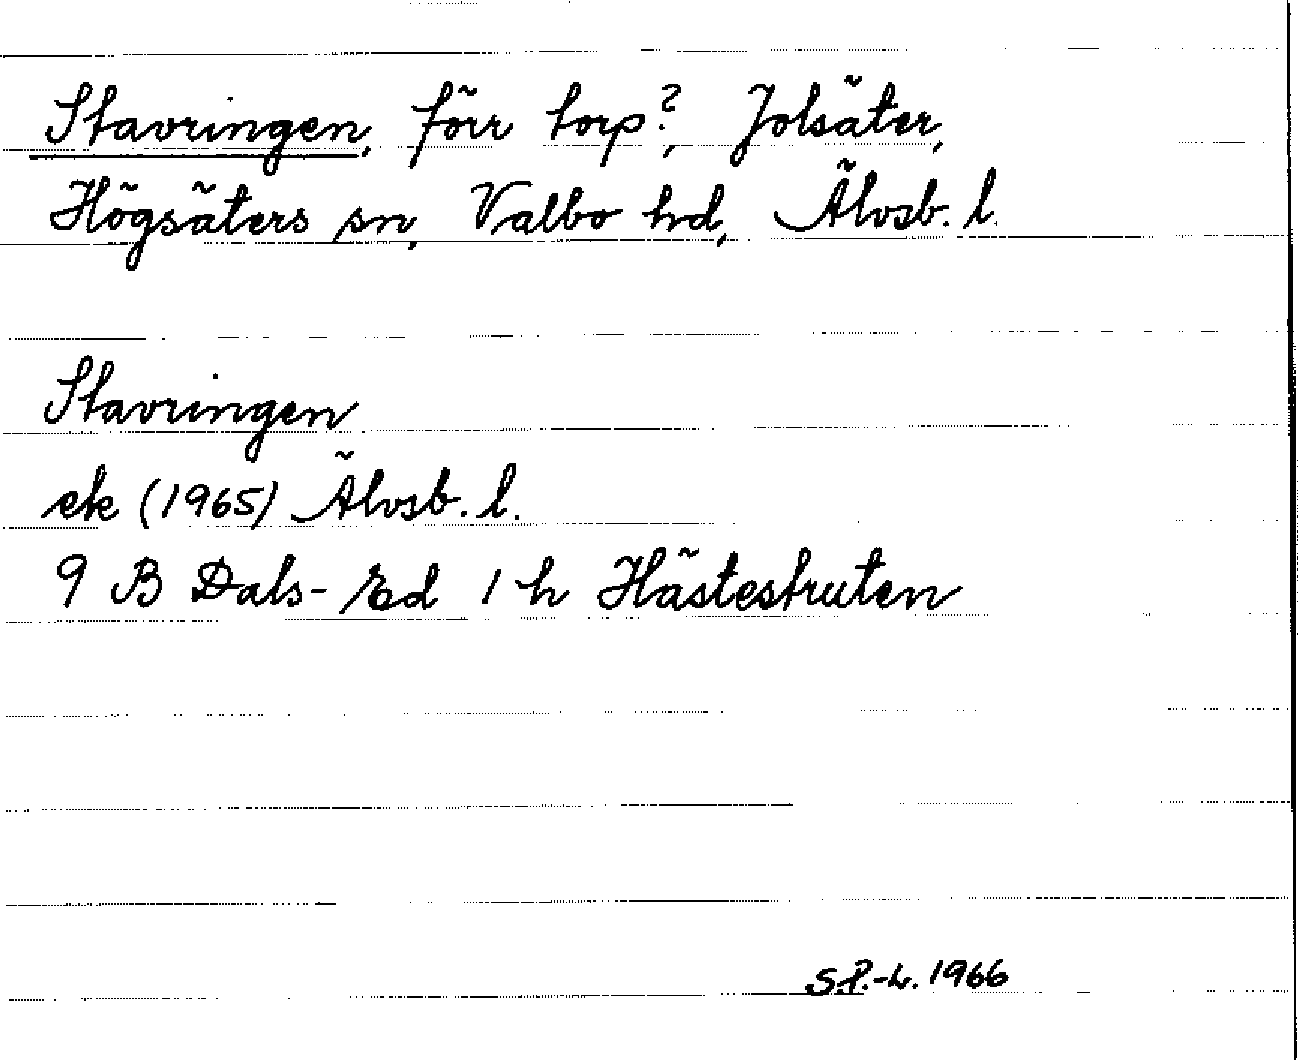 Stavringen, förr torp?, Jolsäter,
Högsäters sn, Valbo hd, Älvsb. l.
Stavringen
ek (1965) Älvsb. l.
9 B Dals-Ed 1 h Hästestruten
S.P.-L. 1966